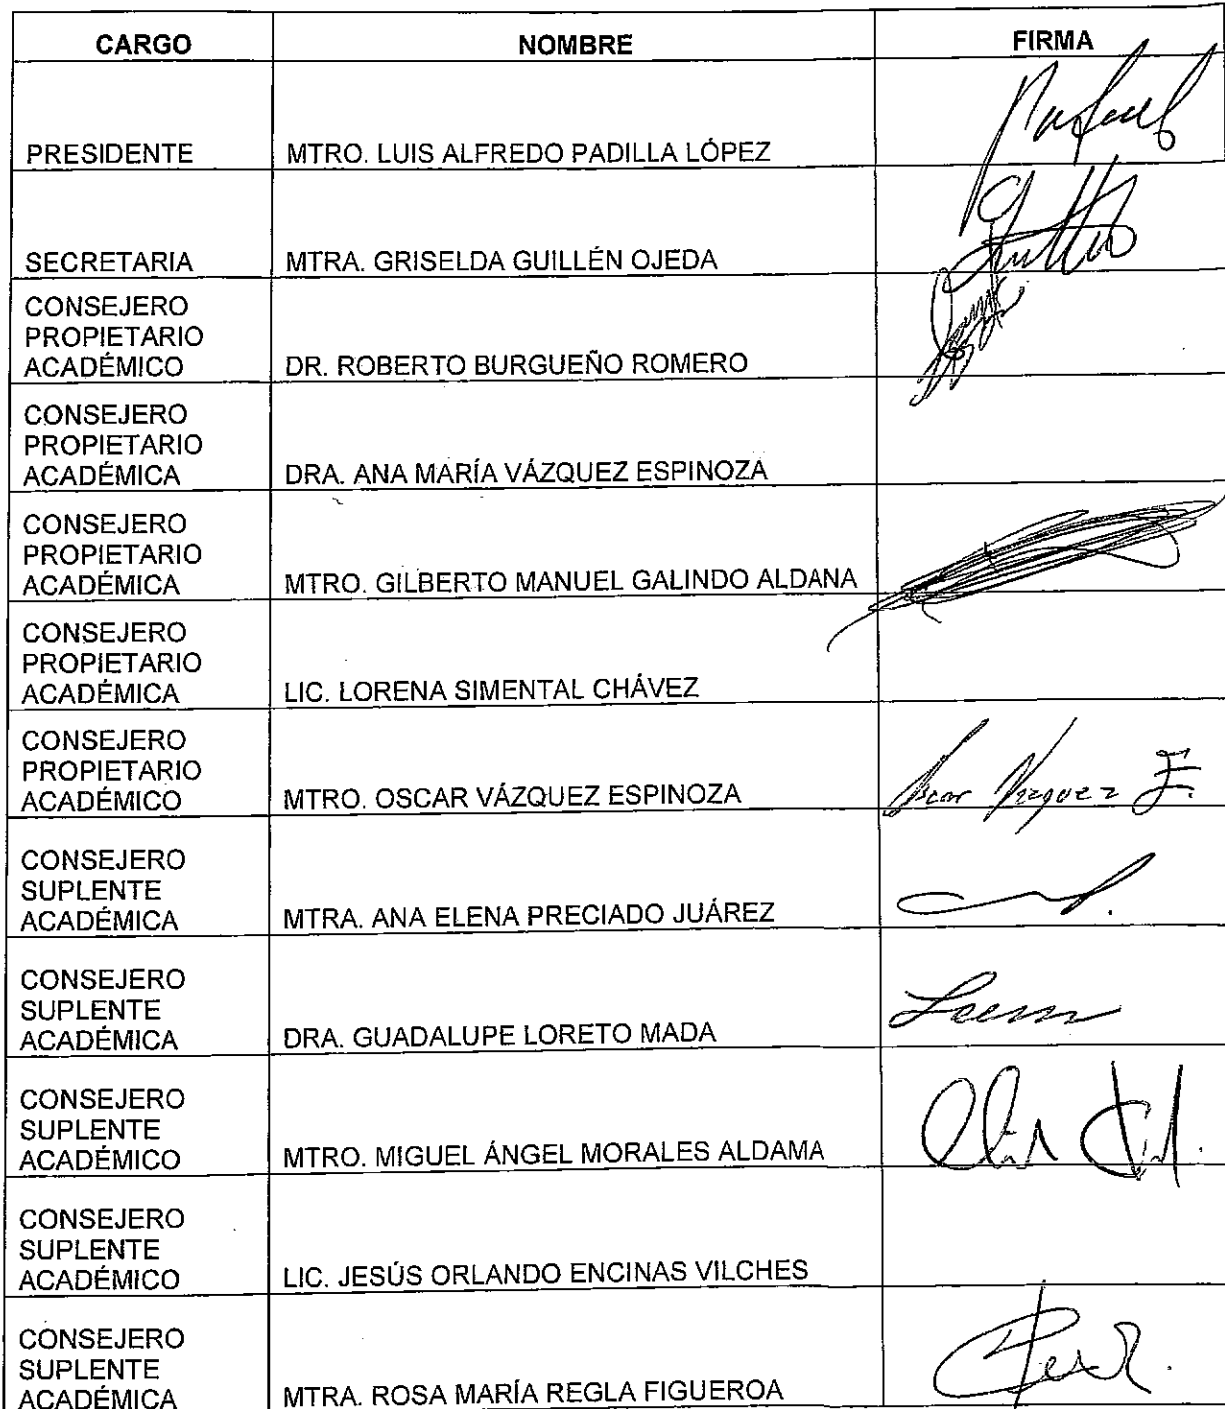 CARGO NOMBRE FIRMA
PRESIDENTE MTRO. LUIS ALFREDO PADILLA LÓPEZ
SECRETARIA MTRA. GRISELDA GUILLÉN OJEDA
CONSEJERO
PROPIETARIO
ACADÉMICO DR. ROBERTO BURGUEÑO ROMERO
CONSEJERO
PROPIETARIO
ACADÉMICA DRA. ANA MARÍA VÁZQUEZ ESPINOZA
CONSEJERO
PROPIETARIO
ACADÉMICA MTRO. GILBERTO MANUEL GALINDO ALDANA
CONSEJERO
PROPIETARIO
ACADÉMICA LIC. LORENA SIMENTAL CHÁVEZ
CONSEJERO
PROPIETARIO
ACADÉMICO MTRO. OSCAR VÁZQUEZ ESPINOZA Oscar Vazquez E.
CONSEJERO
SUPLENTE
ACADÉMICA MTRA. ANA ELENA PRECIADO JUÁREZ
CONSEJERO
SUPLENTE
ACADÉMICA DRA. GUADALUPE LORETO MADA
CONSEJERO
SUPLENTE
ACADÉMICO MTRO. MIGUEL ÁNGEL MORALES ALDAMA
CONSEJERO
SUPLENTE
ACADÉMICO LIC. JESÚS ORLANDO ENCINAS VILCHES
CONSEJERO
SUPLENTE
ACADÉMICA MTRA. ROSA MARÍA REGLA FIGUEROA